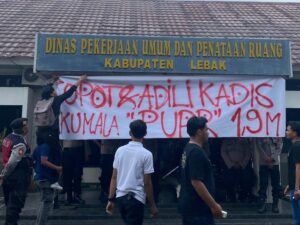 DINAS PEKERJAAN UMUM DAN PENATAAN RUANG
KABUPATEN LEBAK
COPOT & ADILI KADIS
KUMALA "PUPR" 1,9 M